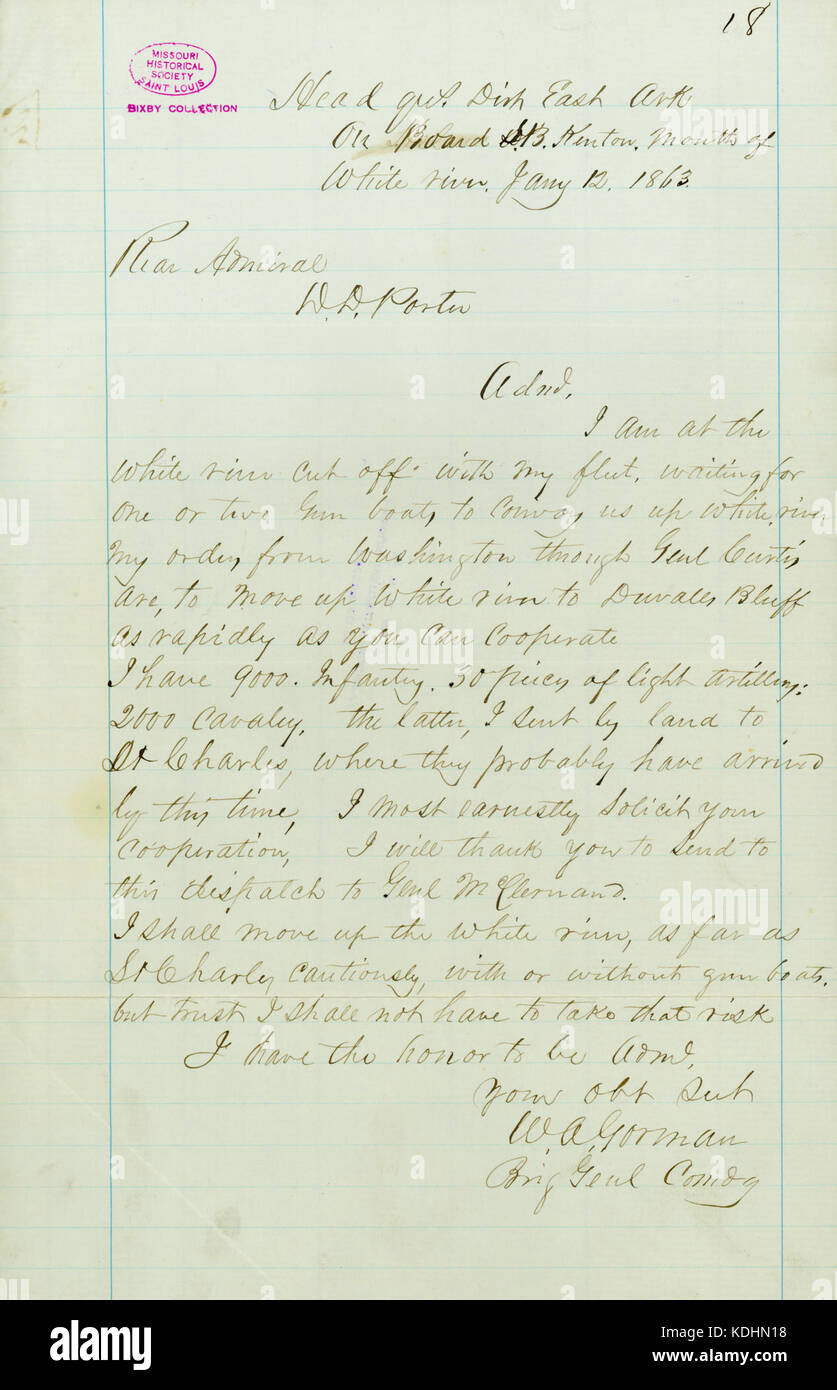 18
MISSOURI
HISTORICAL
SOCIETY
SAINT LOUIS
BIXBY COLLECTION
Head qrs. Dist East Ark
On Board S.B. Kenton. Mouth of
White river. Jany 12. 1863.
Rear Admiral
D. D. Porter
Adml.
I am at the
White river cut off with my fleet, waiting for
one or two Gun boats to convoy us up White river.
My orders from Washington through Genl Curtis
are, to move up White river to Duvales Bluff
as rapidly as you can cooperate
I have 9000. Infantry. 30 pieces of light artillery:
2000 Cavalry, the latter, I sent by land to
St Charles, where they probably have arrived
by this time, I most earnestly solicit your
cooperation, I will thank you to send to
this dispatch to Genl McClernand.
I shall move up the White river, as far as
St Charles cautiously, with or without gun boats.
but trust I shall not have to take that risk
I have the honor to be Adml.
your obt Svt
W. A. Gorman
Brig Genl Comdg
alamy
Image ID: KDHN18
www.alamy.com